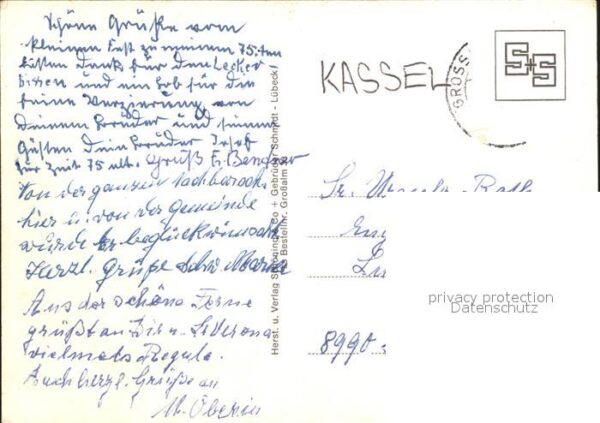 Schöne Grüße vom
kleinen Fest zu meinem 75.ten
besten Dank für den Lecker
bissen und ein Lob für die
feine Verzierung, von
Deinem Bruder und seinen
Gästen Dein Bruder Josef
zur Zeit 75 alt. Gruß E. Benger
Von der ganzen Nachbarsch.
hier u. von der Gemeinde
wurde er beglückwünscht
Herzl. Grüße Schw. Maria
Aus der schöne Ferne
grüßt an Dir u. Sr Verena
vielmals Regula.
Auch herzl. Grüße an
W. Oberin
Herst. u. Verlag Schöning & Co + Gebrüder Schmidt - Lübeck
Bestellnr. Großalm
KASSEL
GROSS
S+S
Sr.
8990
privacy protection
Datenschutz